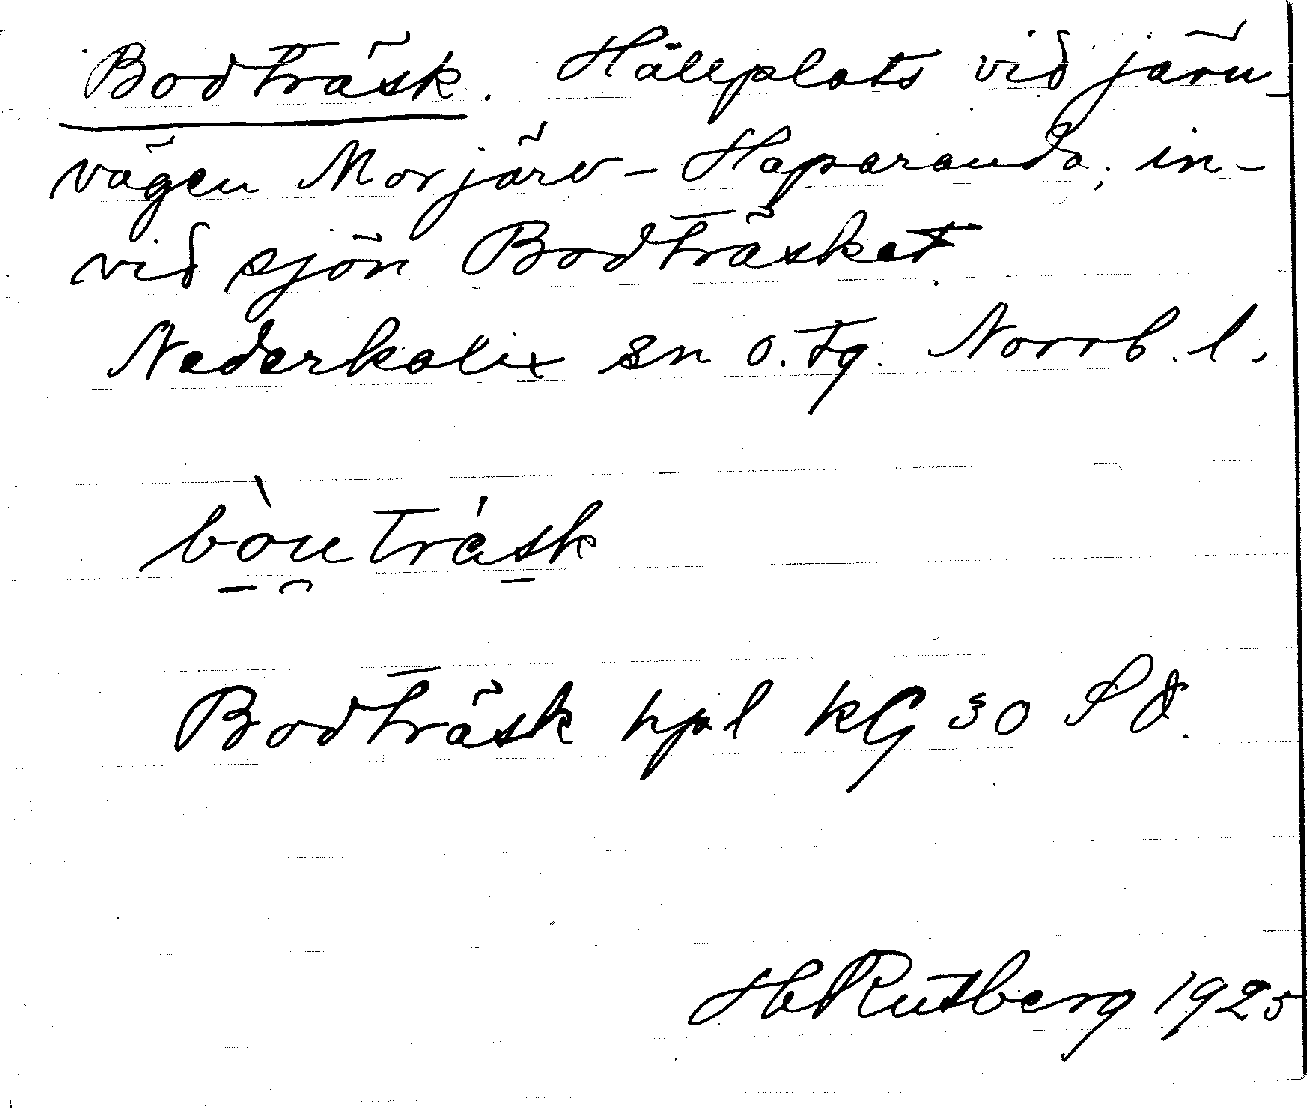 Bodträsk. Hållplats vid järn-
vägen Morjärv - Haparanda, in-
vid sjön Bodträsket.
Nederkalix sn o. tg. Norrb. l.
bòuträsk
Bodträsk hpl KG 30 SO.
H Rutberg 1925